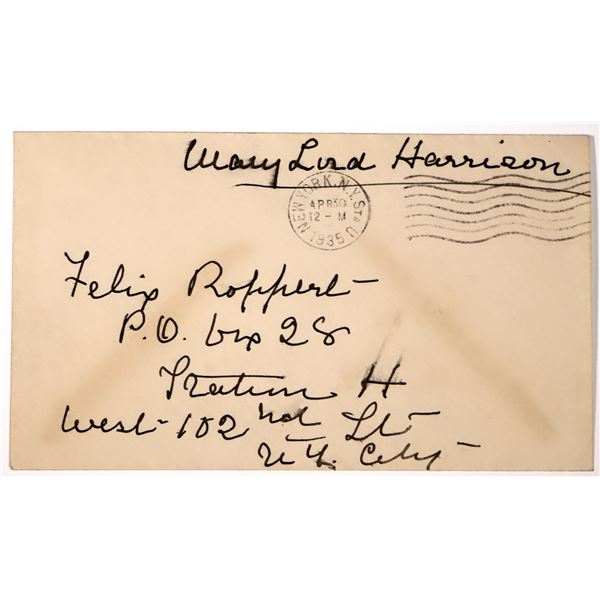 Mary Lord Harrison
NEW YORK, N.Y. STA U
APR 30
12 - M
1935
Felix Roppert
P.O. box 28
Station H
West 102nd St
N.Y. City